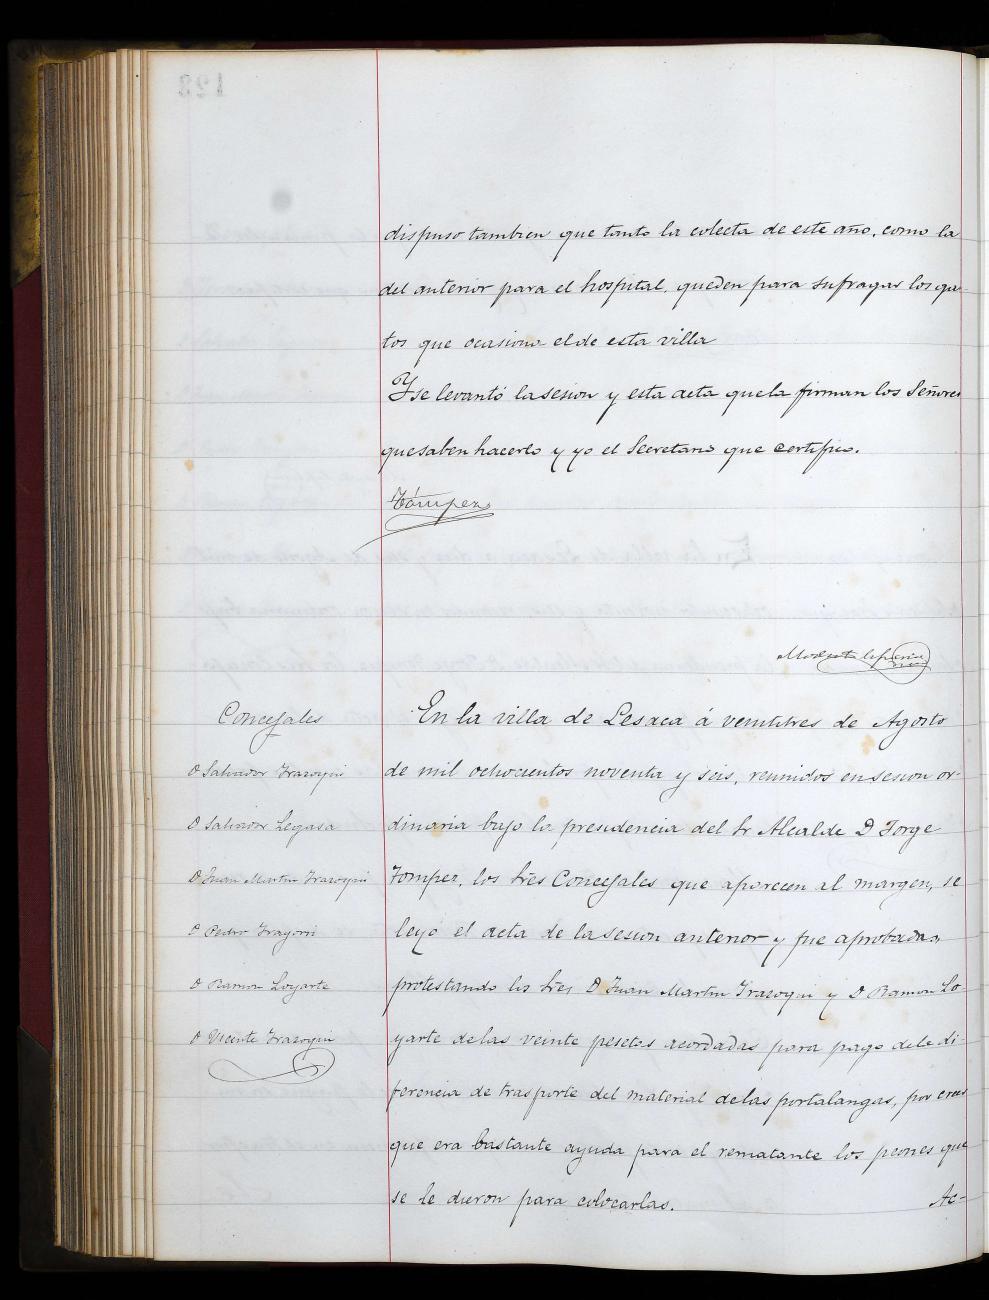 dispuso tambien que tanto la colecta de este año, como la
del anterior para el hospital, queden para sufragar los ga-
tos que ocasiona el de esta villa
Y se levantó la sesion y esta acta que la firman los Señores
que saben hacerlo y yo el Secretario que certifico.
Tómpez
Modesto
Concejales
D Salvador Irazoqui
D Salvador Legasa
D Juan Martin Irazoqui
D Pedro Irazoqui
D Ramon Loyarte
D Vicente Irazoqui
En la villa de Lesaca á veintitres de Agosto
de mil ochocientos noventa y seis, reunidos en sesion or-
dinaria bajo la presidencia del Sr Alcalde D Jorge
Tompez, los Sres Concejales que aparecen al margen, se
leyó el acta de la sesion anterior y fue aprobada,
protestando los Sres D Juan Martin Irazoqui y D Ramon Lo-
yarte de las veinte pesetas acordadas para pago de la di-
ferencia de trasporte del material de las portalangas, por creer
que era bastante ayuda para el rematante los peones que
se le dieron para colocarlas. Ac-